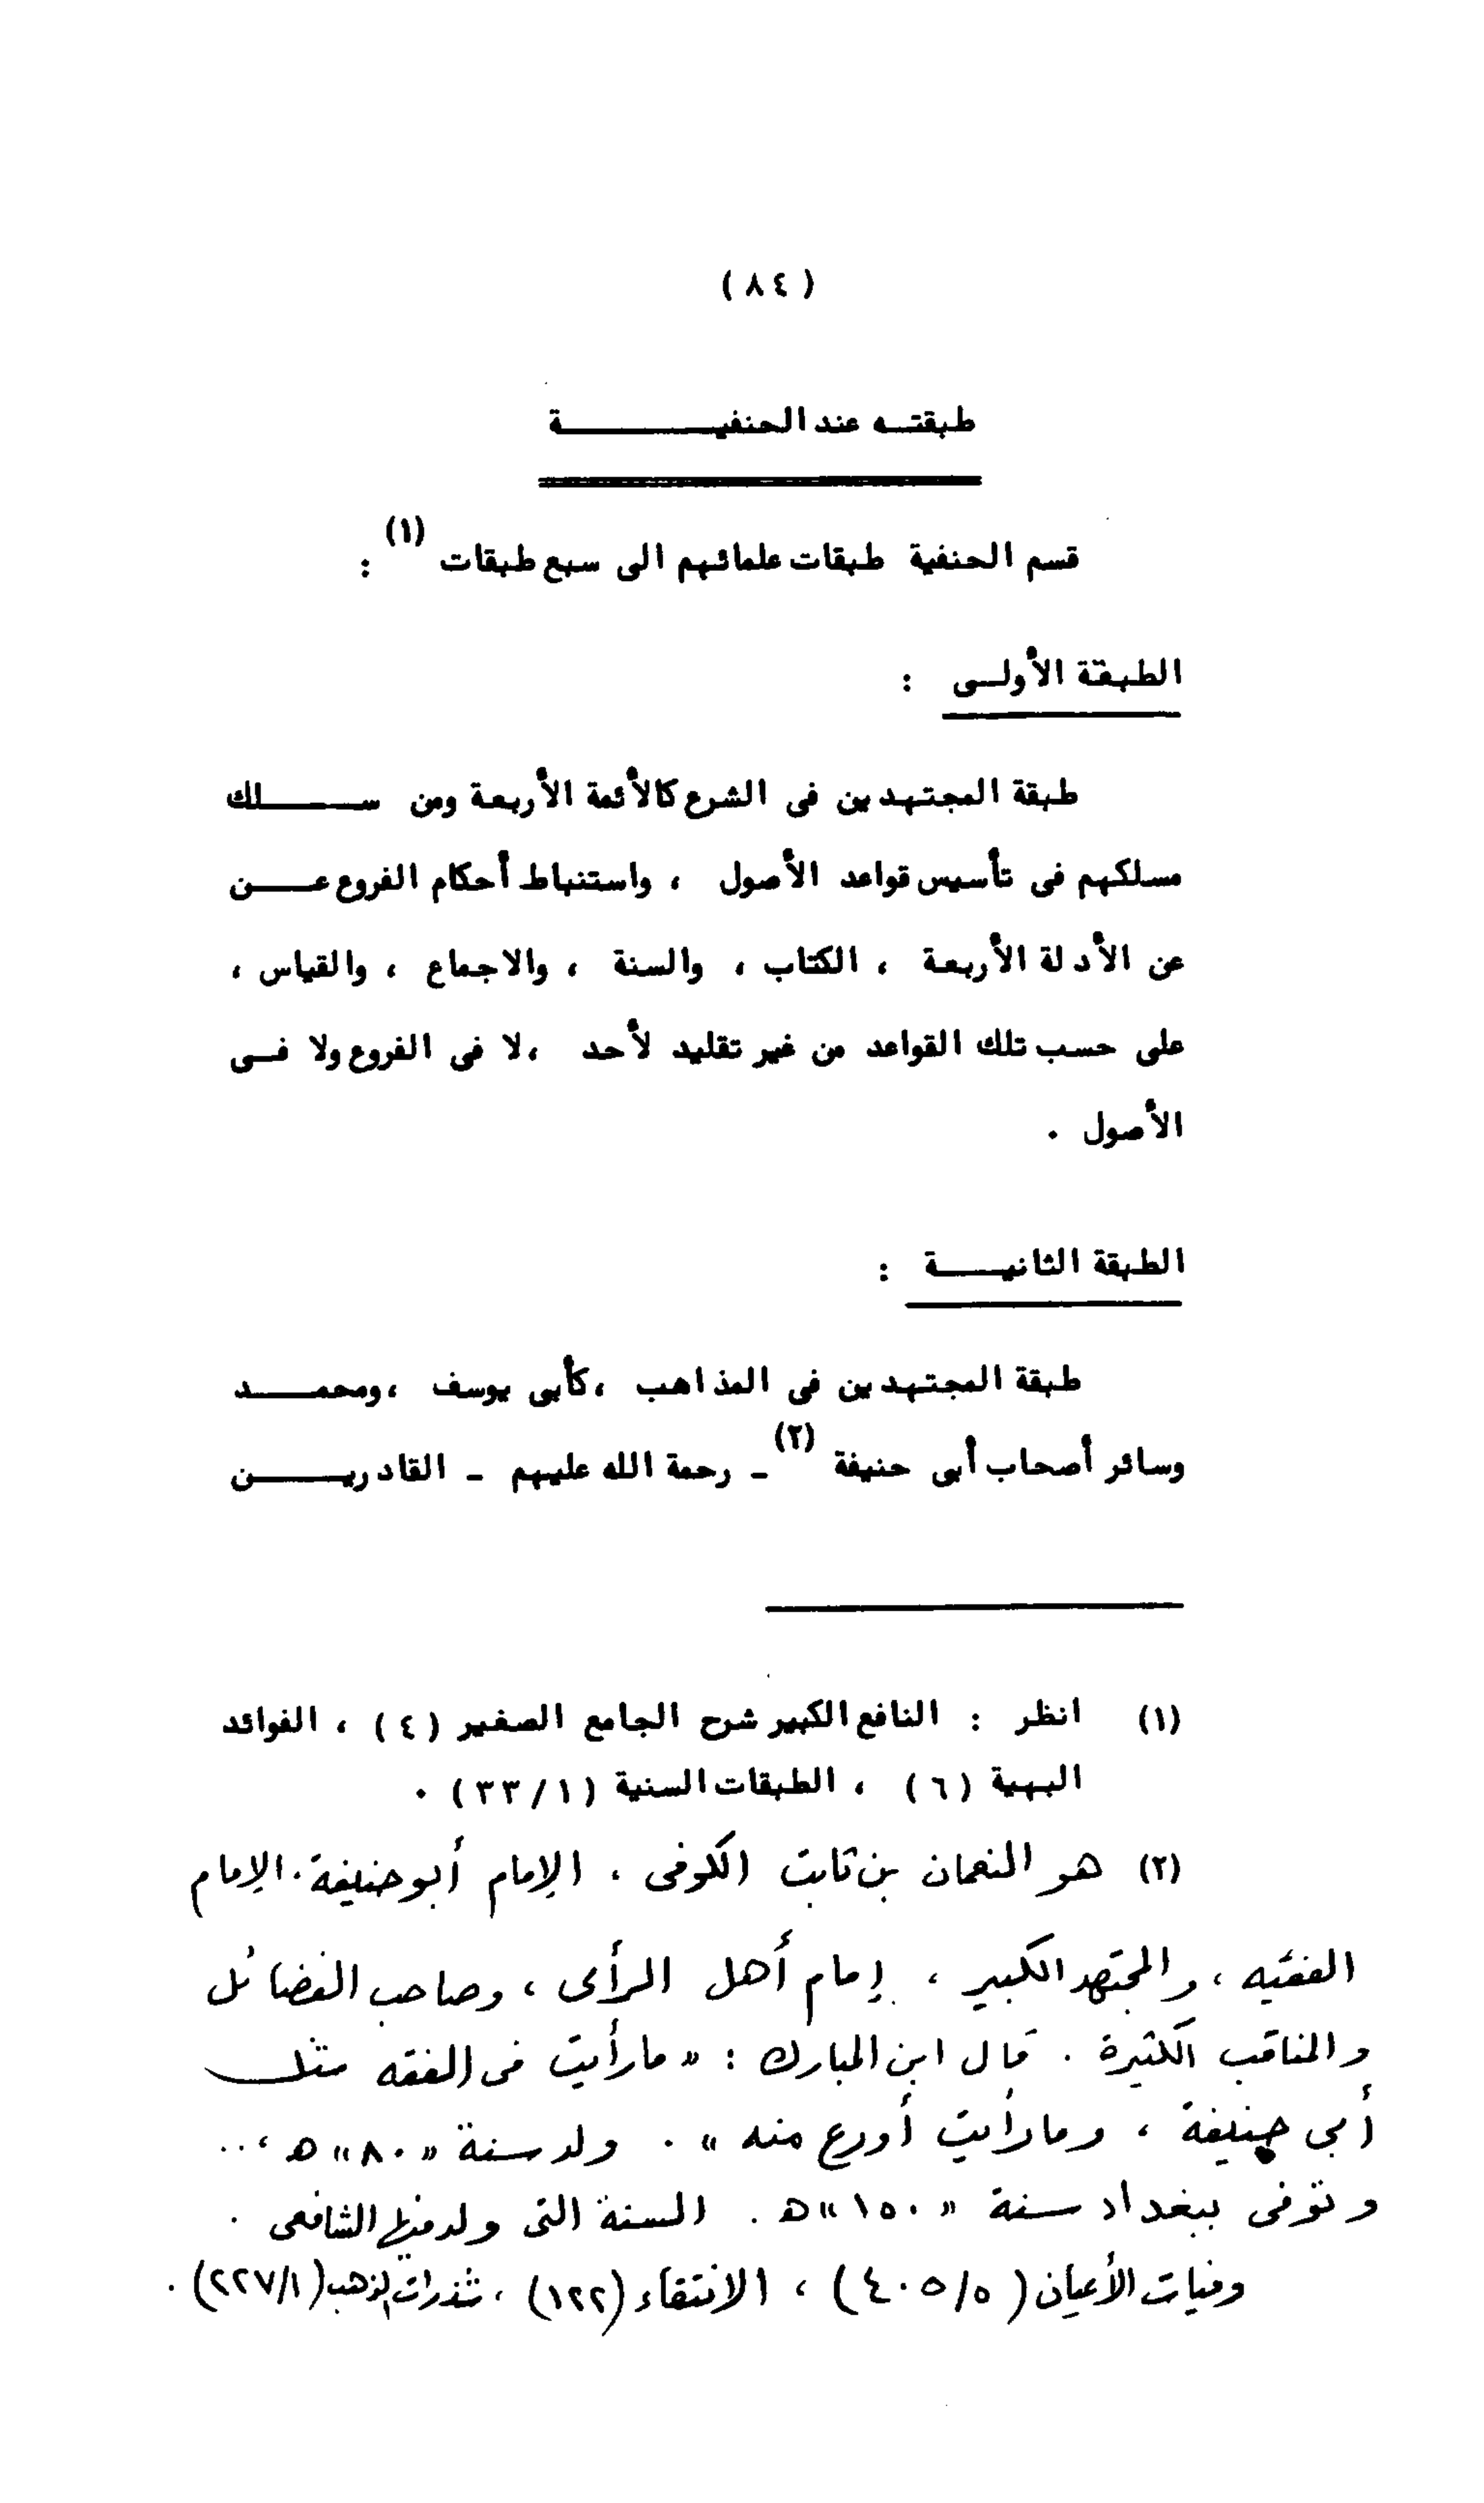 (٨٤)
طبقته عند الحنفية
قسم الحنفية طبقات علمائهم الى سبع طبقات (١) :
الطبقة الأولى :
طبقة المجتهدين فى الشرع كالأئمة الأربعة ومن سلك
مسلكهم فى تأسيس قواعد الأصول ، واستنباط أحكام الفروع عن
عن الأدلة الأربعة ، الكتاب ، والسنة ، والاجماع ، والقياس ،
على حسب تلك القواعد من غير تقليد لأحد ، لا فى الفروع ولا فى
الأصول .
الطبقة الثانية :
طبقة المجتهدين فى المذاهب ، كأبى يوسف ، ومحمد
وسائر أصحاب أبى حنيفة (٢) - رحمة الله عليهم - القادرين
(١) انظر : النافع الكبير شرح الجامع الصغير (٤) ، الفوائد
البهية (٦) ، الطبقات السنية (٣٣/١) .
(٢) هو النعمان بن ثابت الكوفى . الإمام أبو حنيفة . الإمام
الفقيه ، والمجتهد الكبير ، إمام أهل الرأى ، وصاحب الفضائل
والمناقب الكثيرة . قال ابن المبارك : « ما رأيت فى الفقه مثل
أبي حنيفة ، وما رأيت أورع منه » . ولد سنة «٨٠» ه ، ..
وتوفى ببغداد سنة «١٥٠» ه . السنة التى ولد فيها الشافعى .
وفيات الأعيان (٤٠٥/٥) ، الانتقاء (١٢٢) ، شذرات الذهب (٢٢٧/١) .